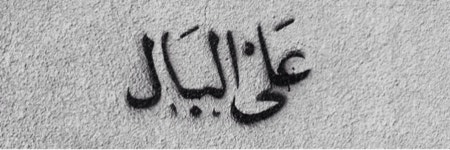 عَلَى البَال